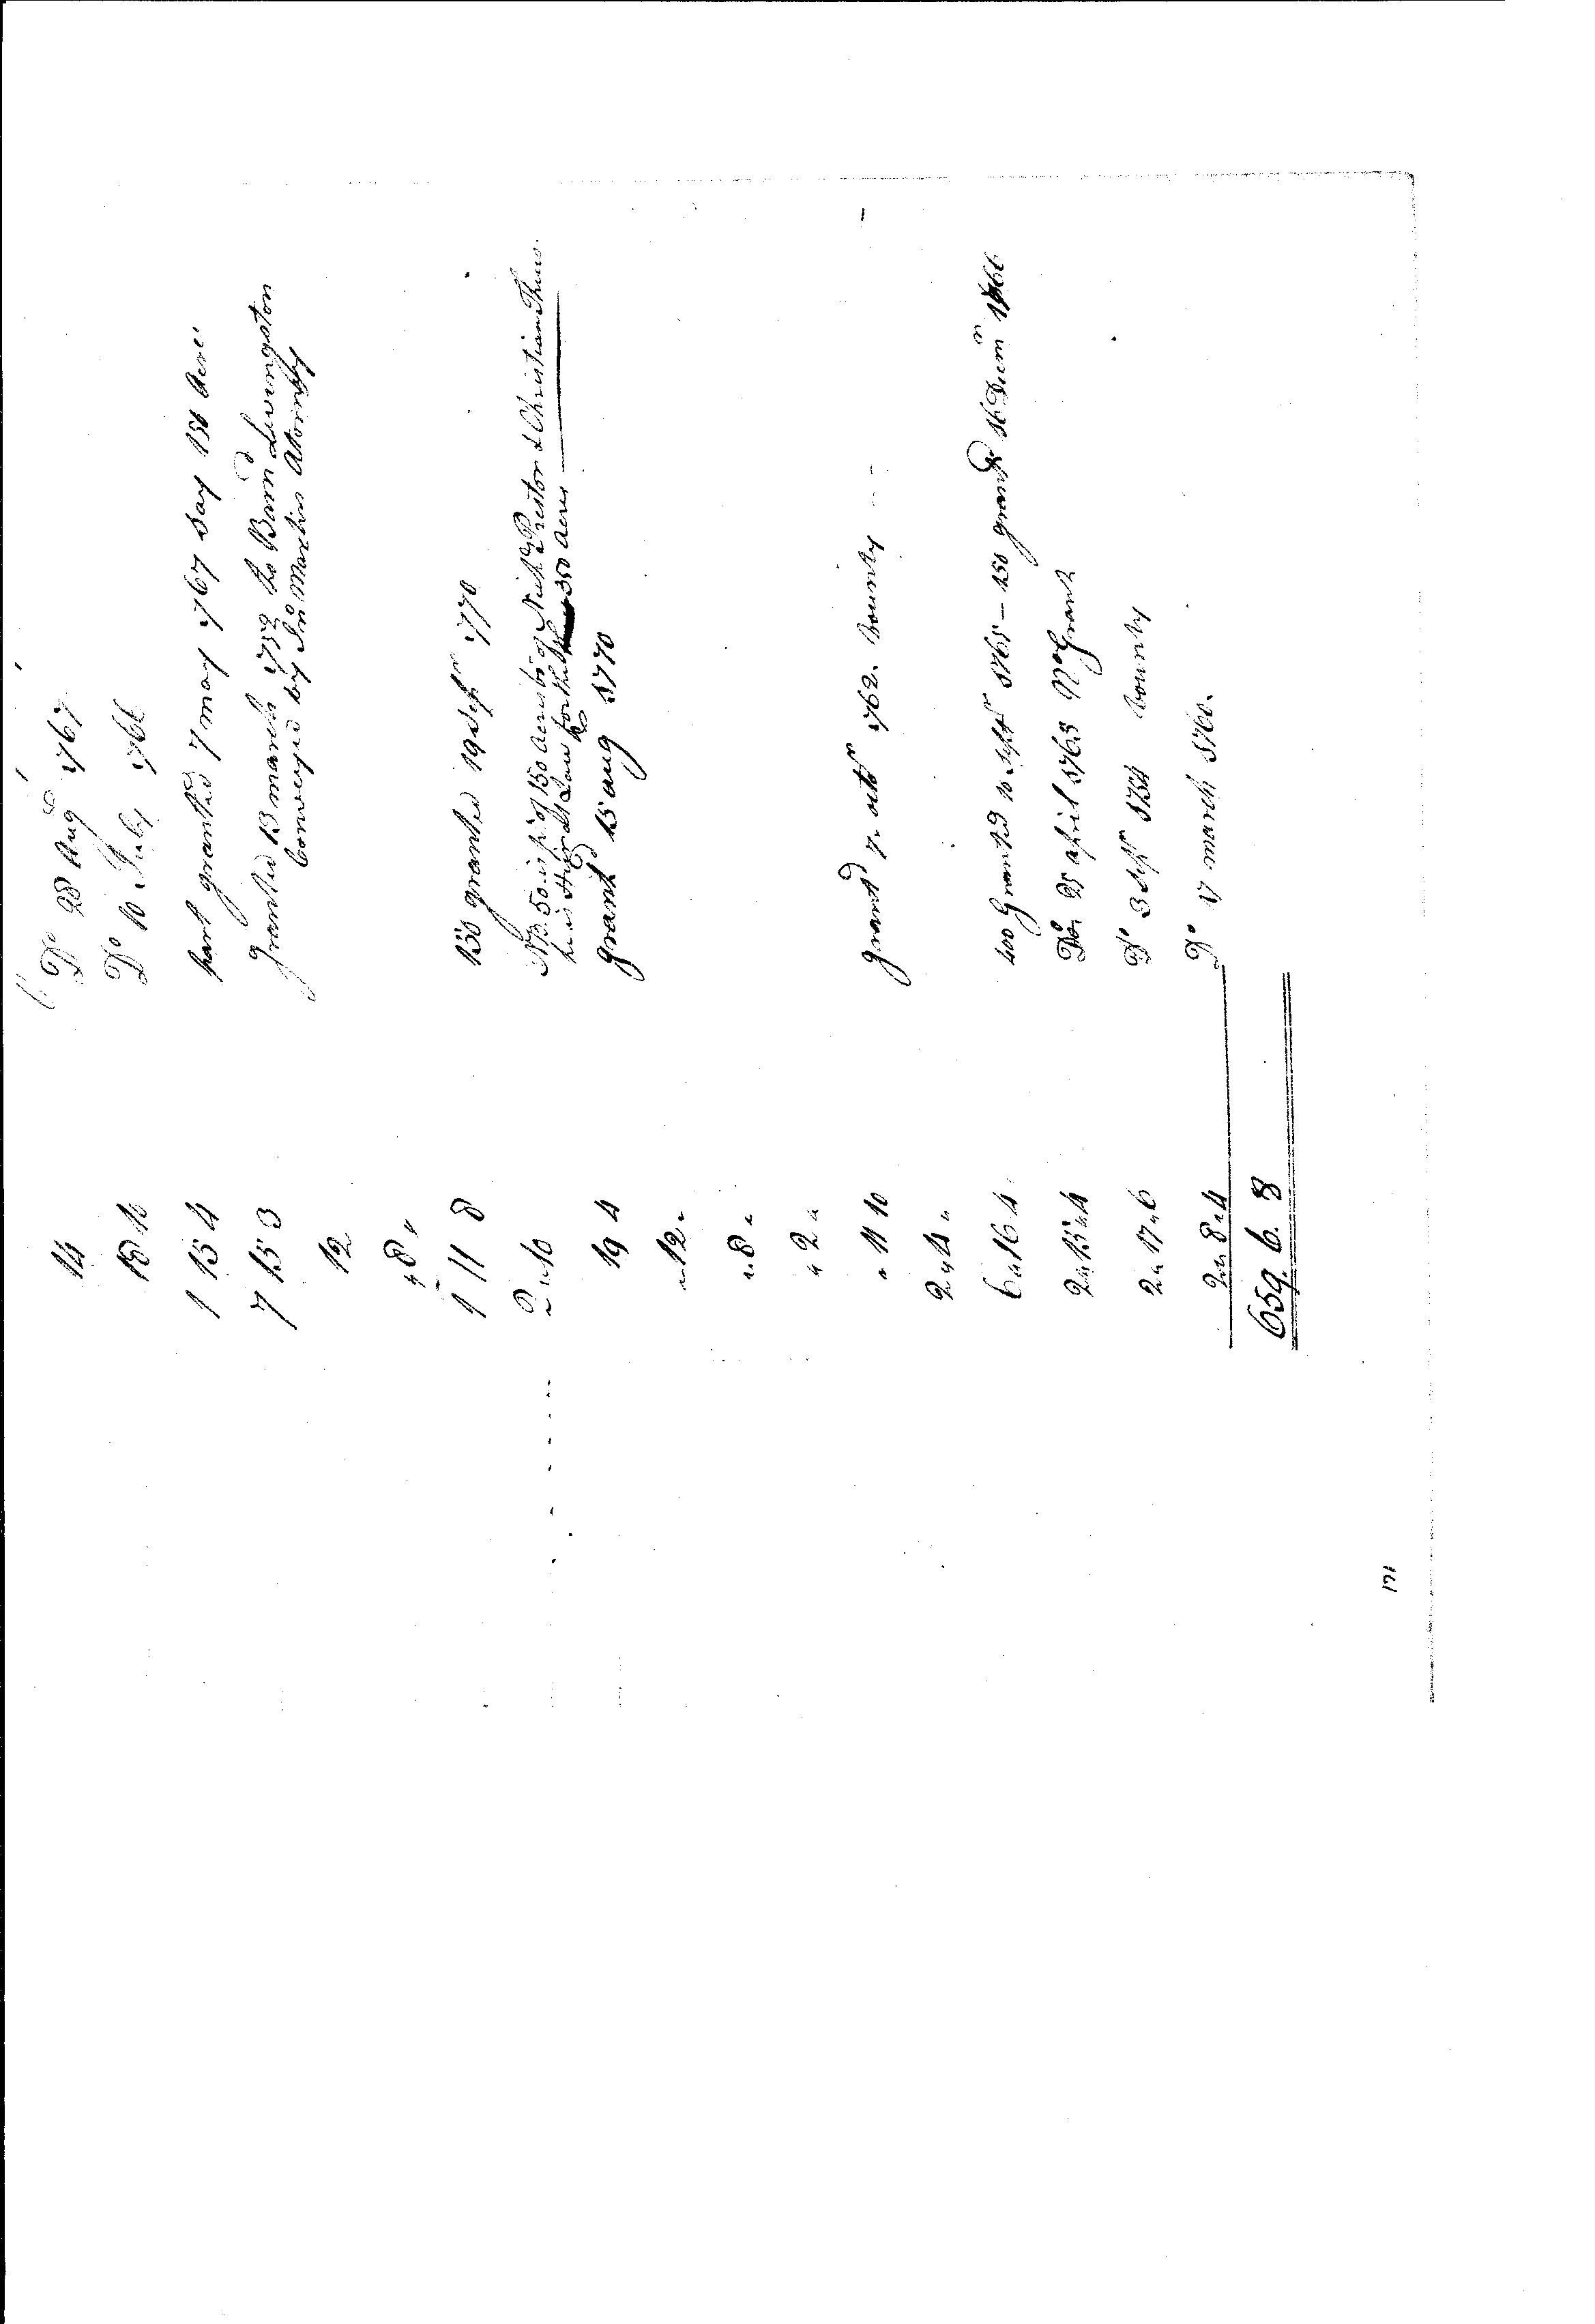 14 Do 28 Augt 1767
18 10 Do 10 July 1766
1 15 4 part granted 7 may 1767 say 150 Acres
7 15 3 Granted 13 march 1752 to Barnd Livingston
Conveyed by Jno Martin Attorney
12
" 8 "
1 11 8 150 granted 19 Sepr 1770
2 " 10 NB. 50 is pt of 150 Acres of Nichs Prestor & Christian Theus
350 Acres
19 4 Grantd 15 aug 1770
" 12 "
" 8 "
" 2 "
" 11 10 Grantd 7 octr 1762. bounty
2 " 4 "
6 " 16 4 400 Granted 10 Septr 1765 - 450 grantd 16 Decem 1766
2 " 15 " 4 Do 25 april 1765 No Grant
2 " 17 " 6 Do 3 Sepr 1754 bounty
2 " 8 " 4 Do 17 march 1760.
659. 6. 8
171